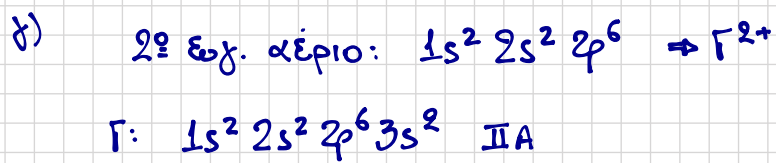 γ) 2º ευγ. αέριο: 1s² 2s² 2p⁶ ⇒ Γ²⁺
Γ: 1s² 2s² 2p⁶ 3s² IIA